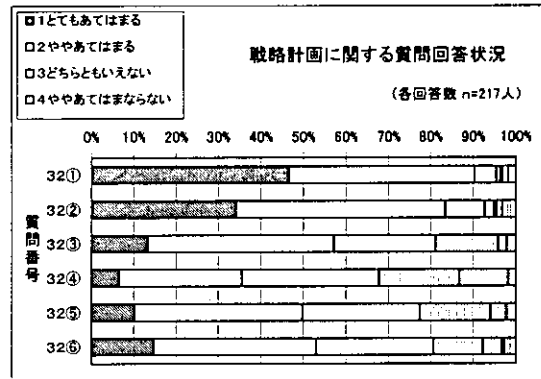 1とてもあてはまる
2ややあてはまる
3どちらともいえない
4ややあてはまならない
戦略計画に関する質問回答状況
(各回答数 n=217人)
0% 10% 20% 30% 40% 50% 60% 70% 80% 90% 100%
質問番号
32①
32②
32③
32④
32⑤
32⑥